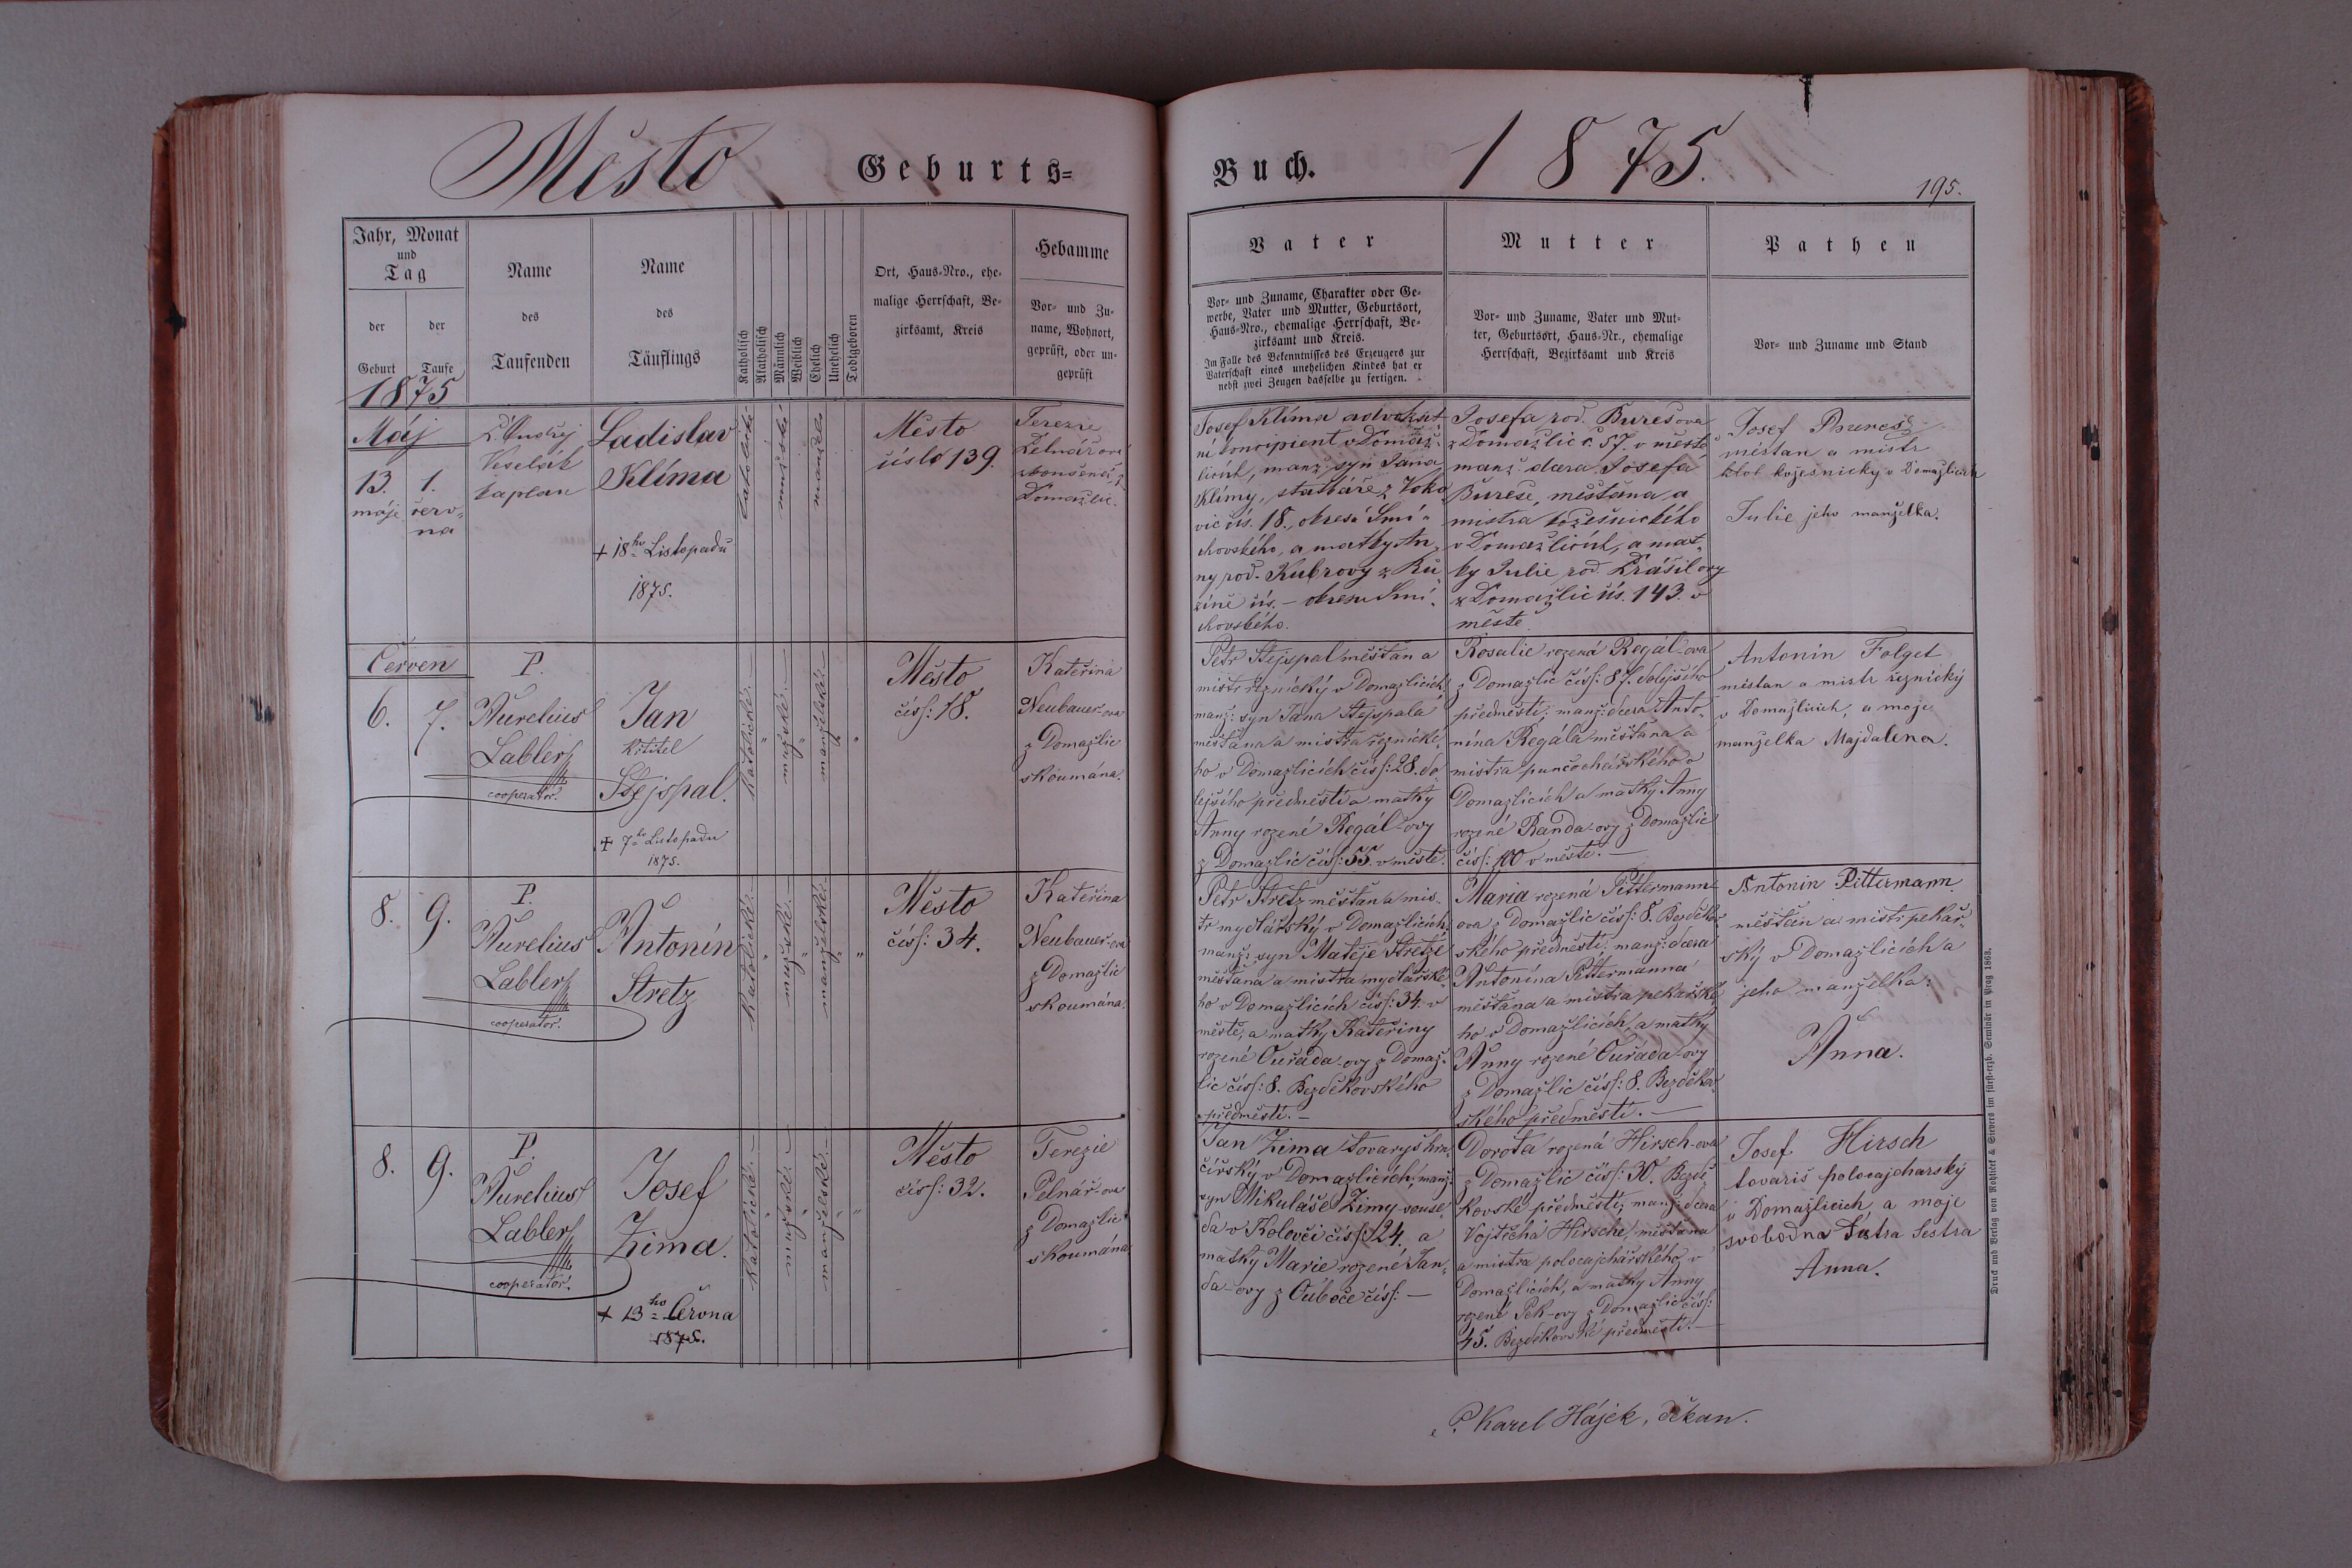 Město
Geburts=
Buch.
1875.
195.
Jahr, Monat
und
Tag
der
Geburt
der
Taufe
Name
des
Taufenden
Name
des
Täuflings
Katholisch
Akatholisch
Männlich
Weiblich
Ehelich
Unehelich
Todtgeboren
Ort, Haus-Nro., ehe-
malige Herrschaft, Be-
zirksamt, Kreis
Hebamme
Vor- und Zu-
name, Wohnort,
geprüft, oder un-
geprüft
Vater
Vor- und Zuname, Charakter oder Ge-
werbe, Vater und Mutter, Geburtsort,
Haus-Nro., ehemalige Herrschaft, Be-
zirksamt und Kreis.
Im Falle des Bekenntnisses des Erzeugers zur
Vaterschaft eines unehelichen Kindes hat er
nebst zwei Zeugen dasselbe zu fertigen.
Mutter
Vor- und Zuname, Vater und Mut-
ter, Geburtsort, Haus-Nr., ehemalige
Herrschaft, Bezirksamt und Kreis
Pathen
Vor- und Zuname und Stand
1875
Máj
13.
máje
1.
červ-
na
P. Ondřej
Veselák
kaplan
Ladislav
Klíma
+ 18ho Listopadu
1875.
katolické
mužské
manžels
Město
číslo 139.
Terezie
Domažlic.
Josef Klíma advokát-
ní koncipient v Domaž-
licích, manž. syn Jana
Klímy, statkáře z Voko-
vic čís. 18., okresu Smí-
chovského, a matky An-
ny rod. Kubrovy z Ru-
zině čís. – okresu Smí-
chovského.
Josefa rod. Burešova
z Domažlic č. 57. v městě
manž. dcera Josefa
Bureše, měšťana a
mistra kožešnického
v Domažlicích, a mat-
ky Julie rod. Krásilovy
z Domažlic čís. 143. v
městě.
Josef Bureš
měštan a mistr
kožešnický v Domažlicích
Julie jeho manželka.
Červen
6.
7.
P.
Aurelius
Labler
cooperator.
Jan
křtitel
Stejspal.
+ 7ho Listopadu
1875.
katolické. –
mužské. –
manželské. –
Město
čísl: 18.
Kateřina
Neubauer-ova
z Domažlic
skoumána.
Petr Stejspal měšťan a
mistr řeznický v Domažlicích,
manž: syn Jana Stejspala
měšťana a mistra řeznické-
ho v Domažlicích čísl: 28. do-
lejšího předměstí a matky
Anny rozené Regál-ovy
z Domažlic čísl: 55. v městě.
Rosalie rozená Regál-ova
z Domažlic čísl: 87. dolejšího
předměstí; manž: dcera Anto-
nína Regála měšťana a
mistra punčochářského v
Domažlicích a matky Anny
rozené Randa-ovy z Domažlic
čísl: 100 v městě. –
Antonín Folget
místan a mistr řeznický
v Domažlicich, a moje
manželka Majdalena.
8.
9.
P.
Aurelius
Labler
cooperator.
Antonín
Stretz
katolické. –
mužské. –
manželské. –
Město
čísl: 34.
Kateřina
Neubauer-ova
z Domažlic
skoumána.
Petr Stretz měšťan a mis-
tr mydlářský v Domažlicích,
manž: syn Matěje Stretze
měšťana a mistra mydlářské-
ho v Domažlicích čísl: 34. v
městě, a matky Kateřiny
rozené Ouřada-ovy z Domaž-
lic čísl: 8. Bezděkovského
předměstí. –
Maria rozená Pittermann-
ova z Domažlic čísl: 8. Bezděkov-
ského předměstí; manž: dcera
Antonína Pittermanna
měšťana a mistra pekařské-
ho v Domažlicích, a matky
Anny rozené Ouřada-ovy
z Domažlic čísl: 8. Bezděkov-
ského předměstí. –
Antonin Pittermann
měštěn a mistr pekař-
ský v Domažlicích a
jeho manželka:
Anna.
8.
9.
P.
Aurelius
Labler
cooperator.
Josef
Zima.
+ 13ho Června
1875.
katolické. –
mužské. –
manželské. –
Město
čísl: 32.
Terezie
Pelnář-ova
z Domažlic
skoumána.
Jan Zima tovaryš hrn-
čířský v Domažlicích, manž.
syn Mikuláše Zimy souse-
da v Kolovči čísl: 124. a
matky Marie rozené Jan-
da-ovy z Ouboče čísl: –
Dorota rozená Hirsch-ova
z Domažlic čísl: 30. Bezdě-
kovské předměstí; manž: dcera
Vojtěcha Hirsche, měšťana
a mistra polocajchářského v
Domažlicích, a matky Anny
rozené Pek-ovy z Domažlic čísl:
45. Bezděkovské předměstí. –
Josef Hirsch
tovariš polocajcharský
v Domažlicich, a moje
svobodna Sestra
Anna.
P. Karel Hájek, děkan.
Druck und Verlag von Rohlíček & Sievers im fürst-erzb. Seminär in Prag 1868.